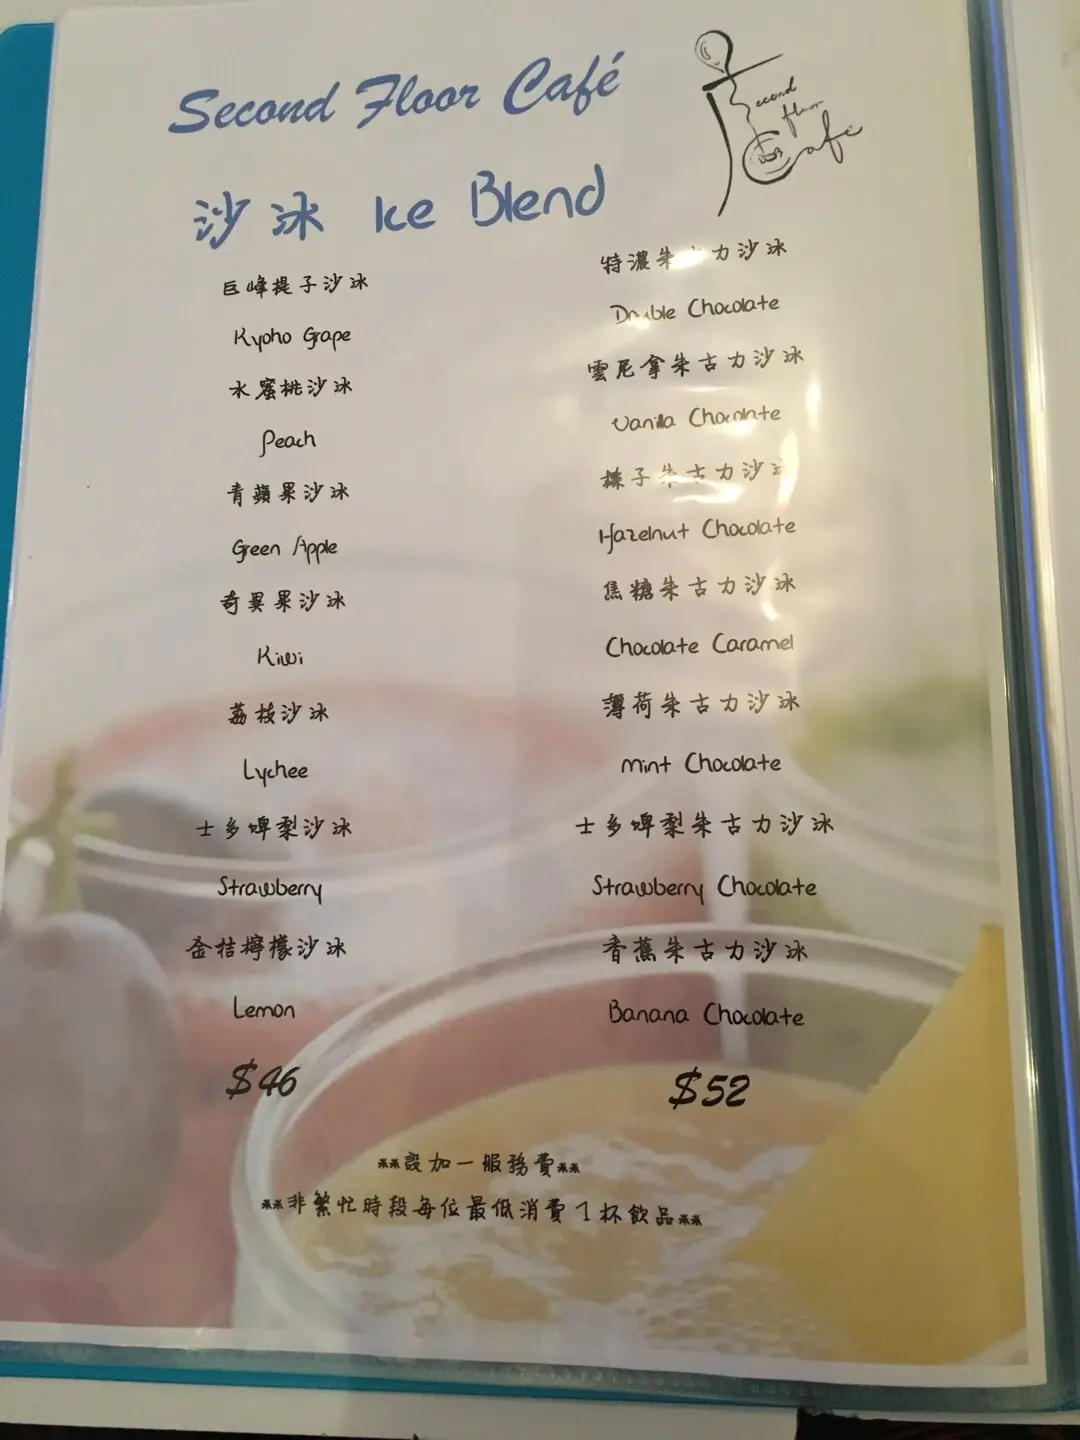 Second Floor Café
Second
floor
Cafe
沙冰 Ice Blend
巨峰提子沙冰
Kyoho Grape
水蜜桃沙冰
Peach
青蘋果沙冰
Green Apple
奇異果沙冰
Kiwi
荔枝沙冰
Lychee
士多啤梨沙冰
Strawberry
金桔檸檬沙冰
Lemon
$46
特濃朱古力沙冰
Double Chocolate
雲尼拿朱古力沙冰
Vanilla Chocolate
榛子朱古力沙冰
Hazelnut Chocolate
焦糖朱古力沙冰
Chocolate Caramel
薄荷朱古力沙冰
Mint Chocolate
士多啤梨朱古力沙冰
Strawberry Chocolate
香蕉朱古力沙冰
Banana Chocolate
$52
**設加一服務費**
**非繁忙時段每位最低消費1杯飲品**